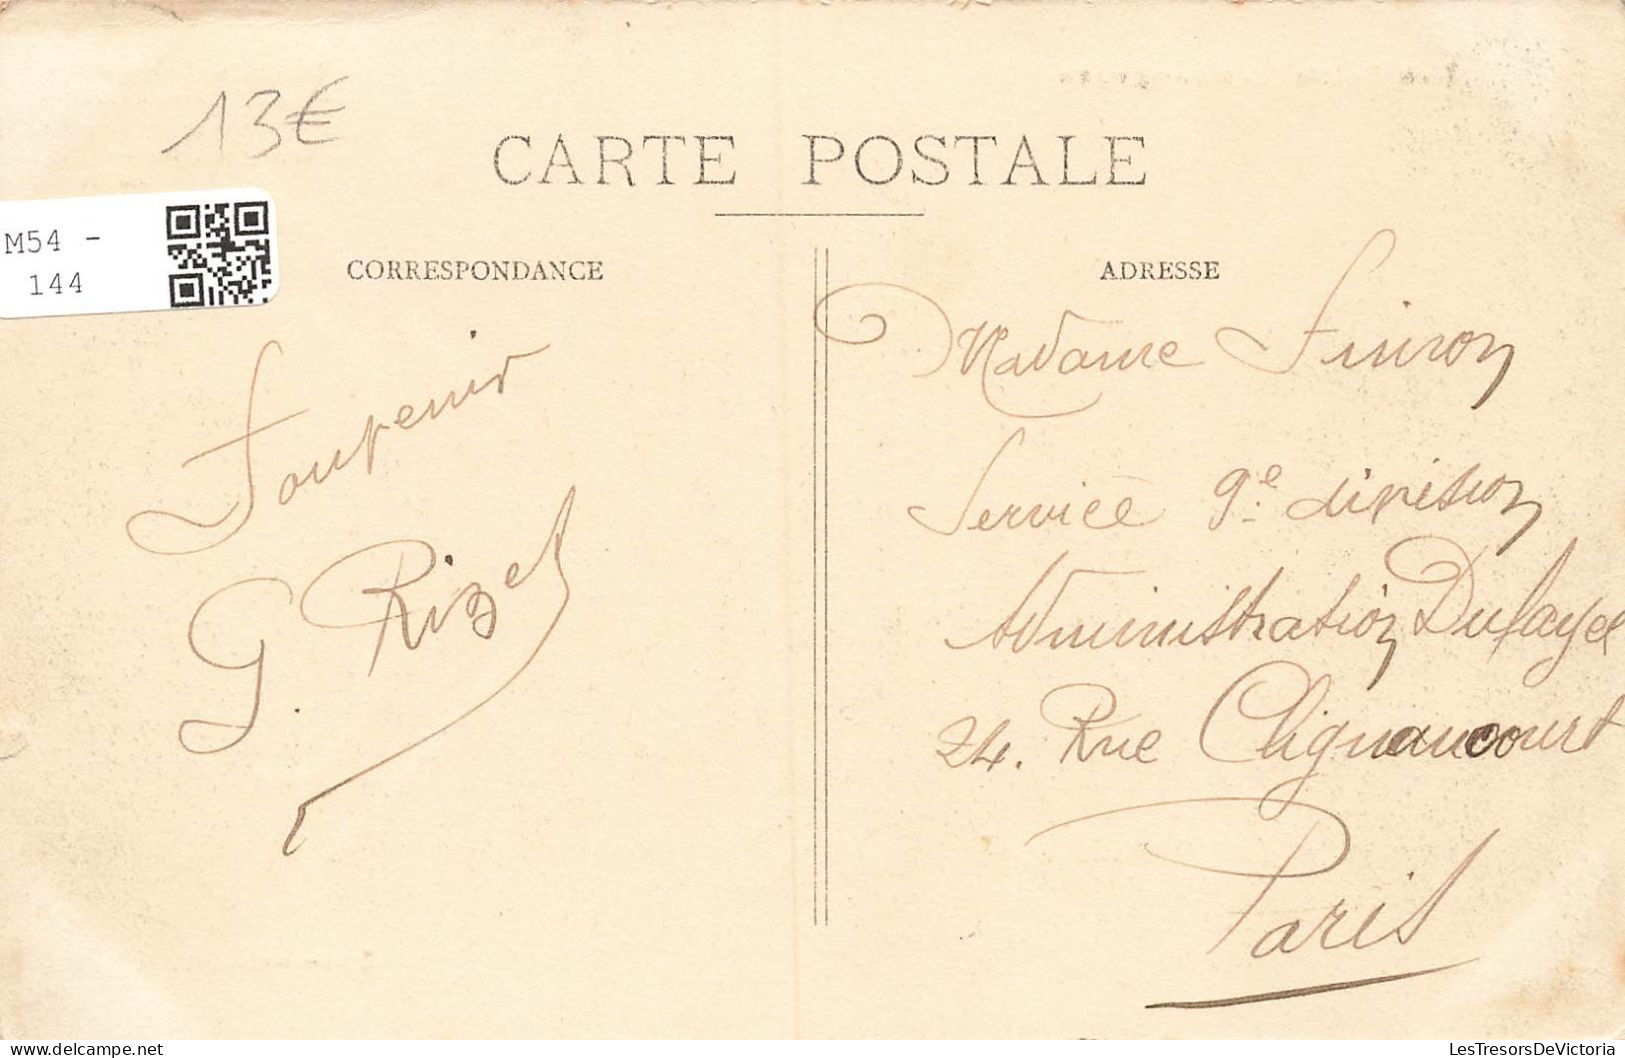 13€
CARTE POSTALE
M54 -
144
CORRESPONDANCE
Souvenir
G. Rizet
ADRESSE
Madame
Service 9e division
Administration Dufayel
24. Rue Clignancourt
Paris
LesTresorsDeVictoria